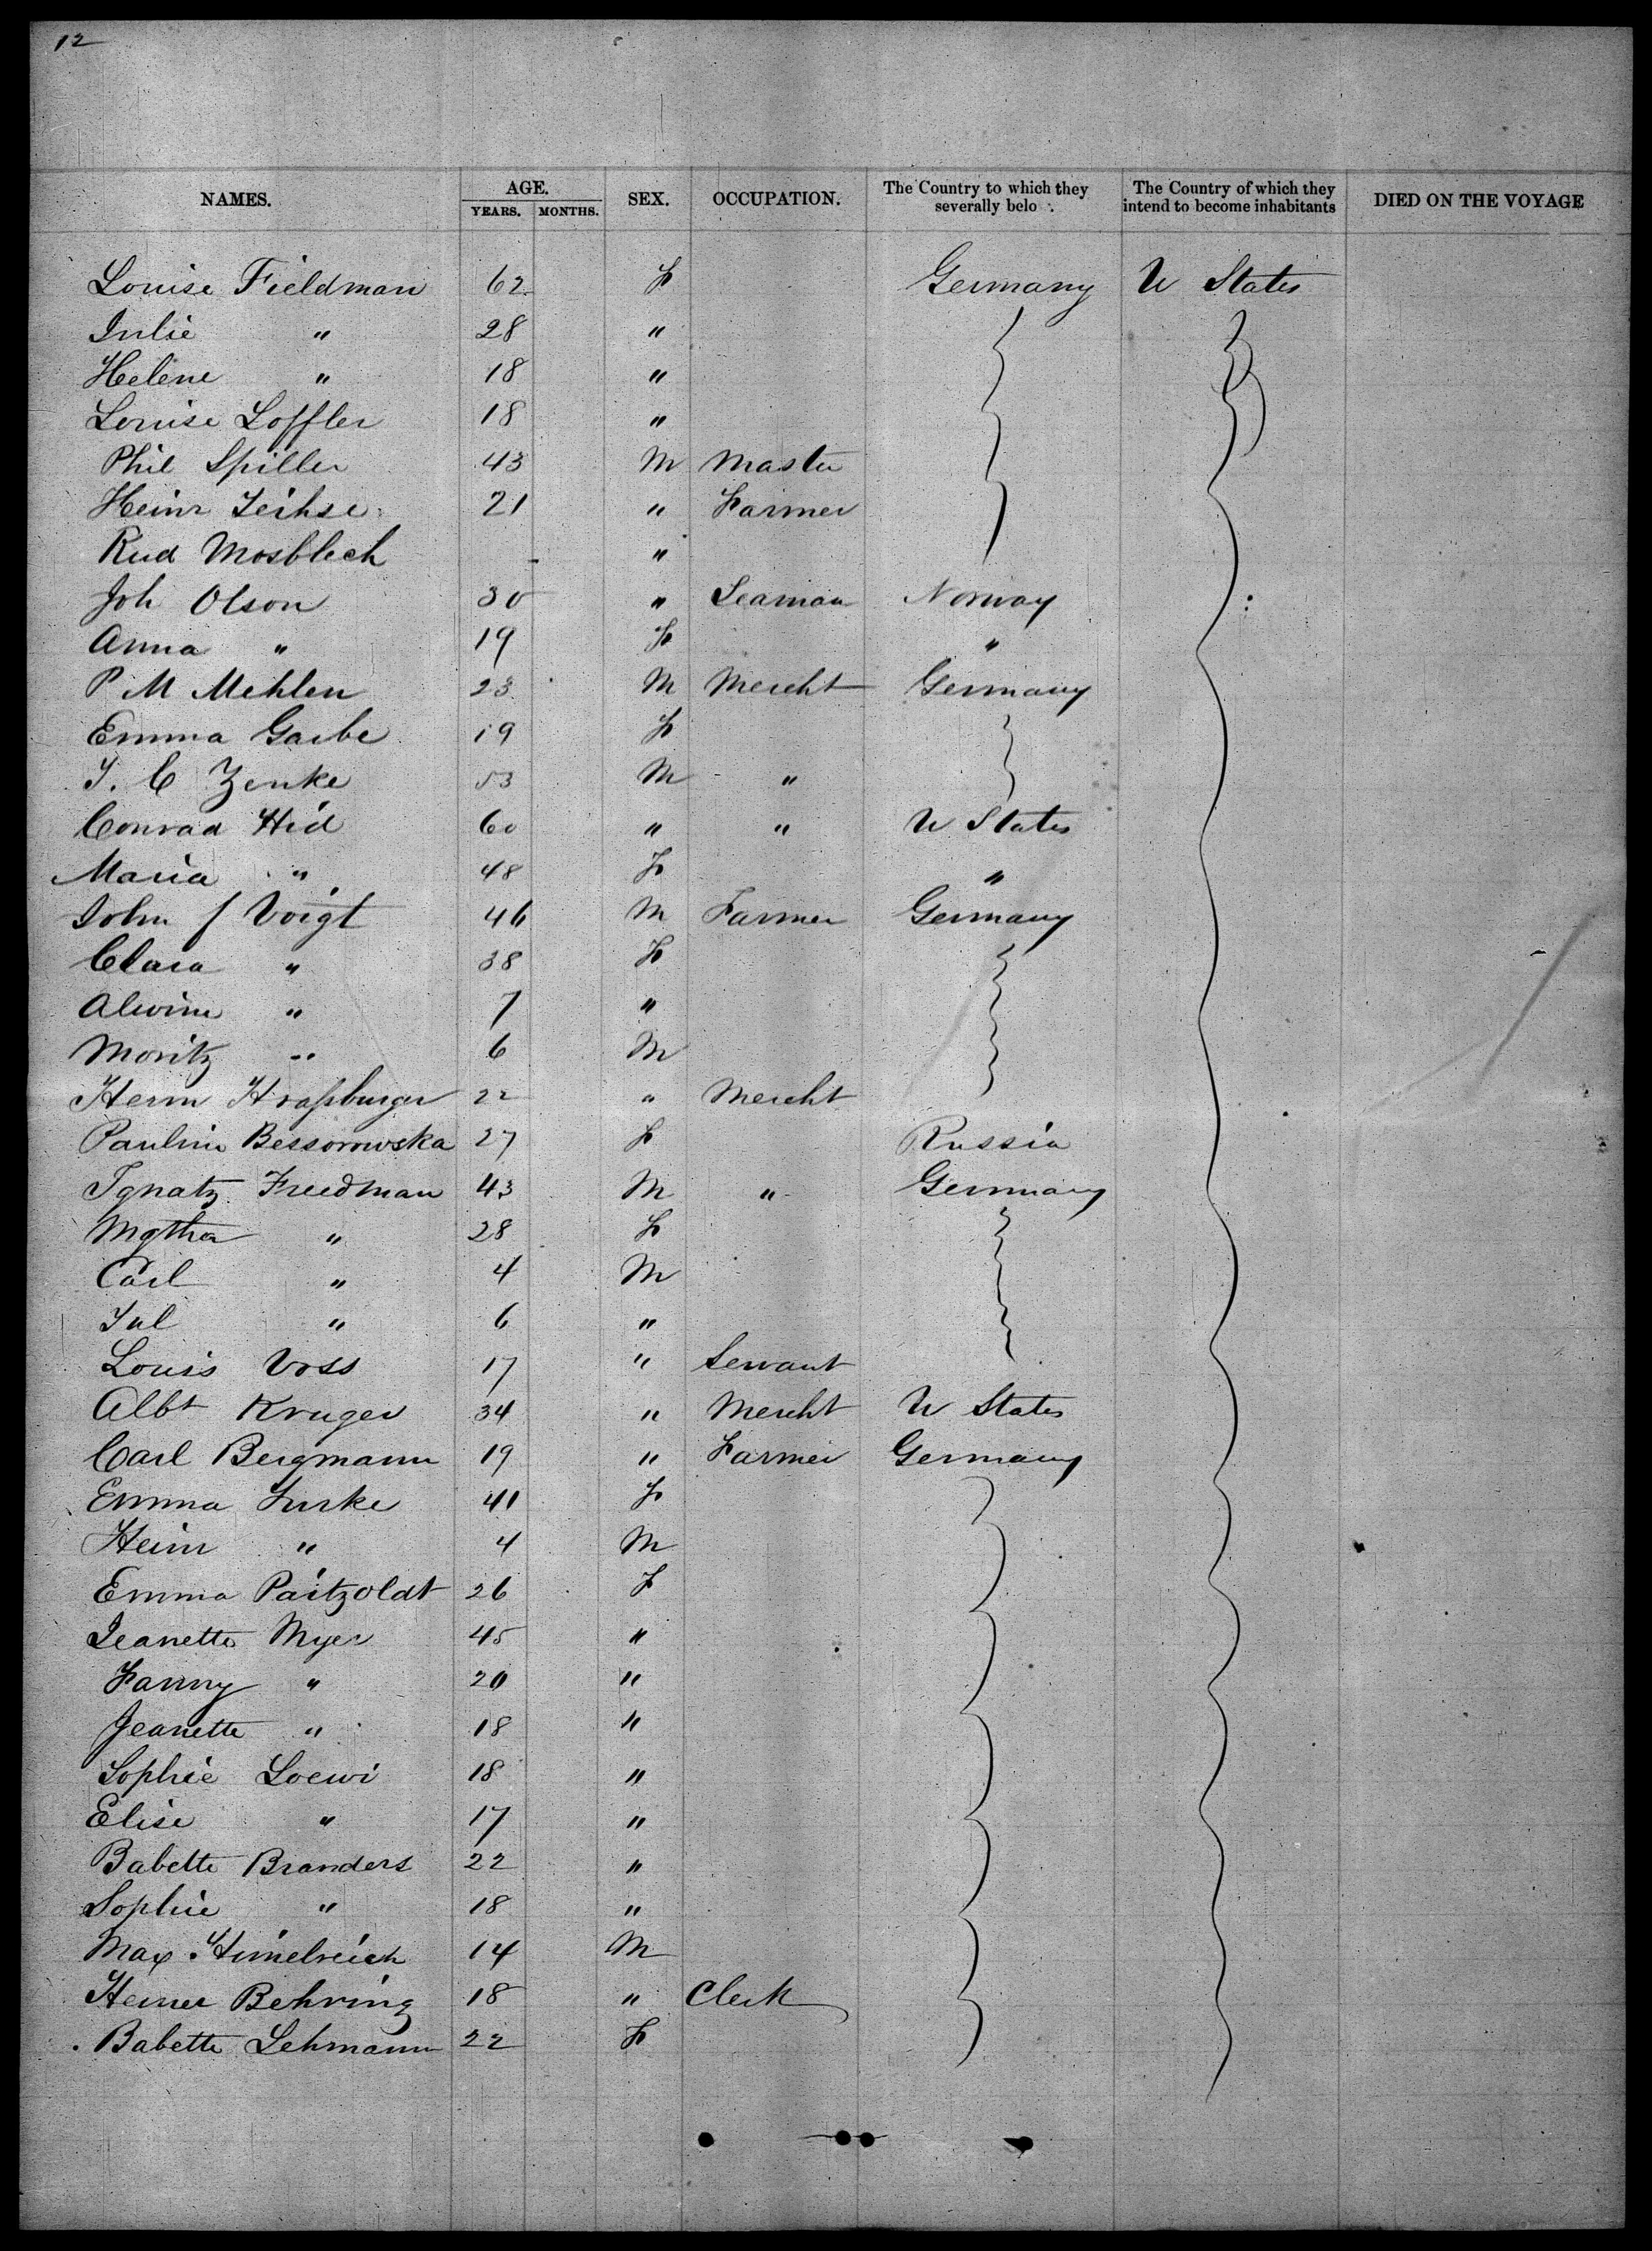 12
NAMES. AGE. YEARS. MONTHS. SEX. OCCUPATION. The Country to which they severally belo The Country of which they intend to become inhabitants DIED ON THE VOYAGE
Louise Fieldman 62 F Germany U States
Julie " 28 "
Helene " 18 "
Louise Loffler 18 "
Phil Spiller 43 M Master
Heinr 21 " Farmer
Rud Mosblech - "
Joh Olson 30 " Seaman Norway
Anna " 19 F "
P M Mehlen 23 M Mercht Germany
Emma Garbe 19 F
J. C Zenke 53 M "
Conrad Hid 60 " " U States
Maria " 48 F "
John f Voigt 46 M Farmer Germany
Clara " 38 F
Alwine " 7 "
Moritz " 6 M
Herm 22 " Mercht
Pauline Bessorowska 27 F Russia
Ignatz Freedman 43 M " Germany
Mgtha " 28 F
Carl " 4 M
Jul " 6 "
Louis Voss 17 " Servant
Albt Kruger 34 " Mercht U States
Carl Bergmann 19 " Farmer Germany
Emma 41 F
Heinr " 4 M
Emma Paitzoldt 26 F
Jeanette Myer 45 "
Fanny " 20 "
Jeanette " 18 "
Sophie Loewi 18 "
Elise " 17 "
Babette Branders 22 "
Sophie " 18 "
Max Himelreich 14 M
Behring 18 " Clerk
Babette Lehmann 22 F